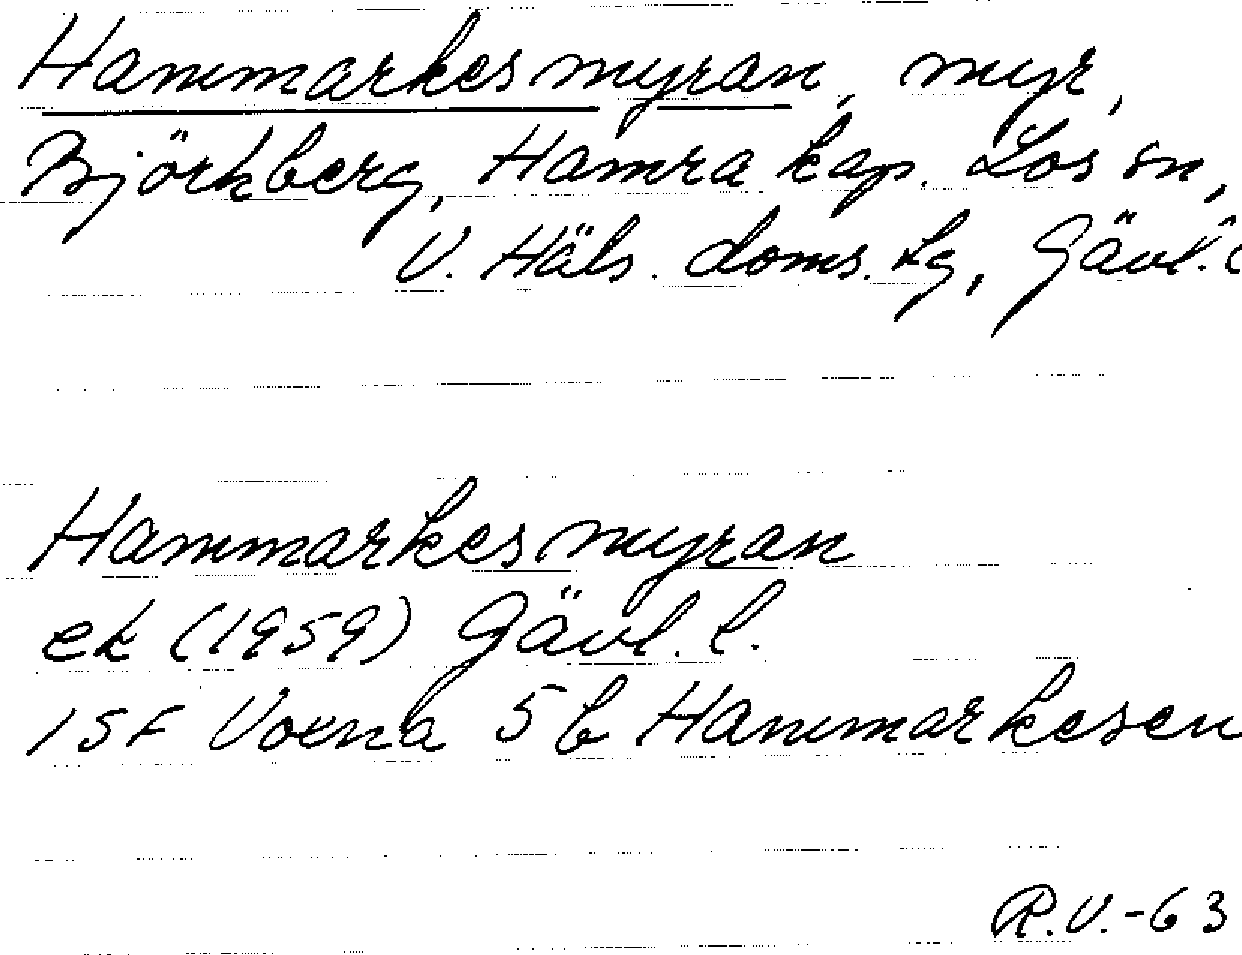 Hammarkesmyran, myr,
Björkberg, Hamra kap. Los sn,
V. Häls. doms. lg, Gävl. l
Hammarkesmyran
ek (1959) Gävl. l.
15F Voxna 5b Hammarkesen
R.V.-63